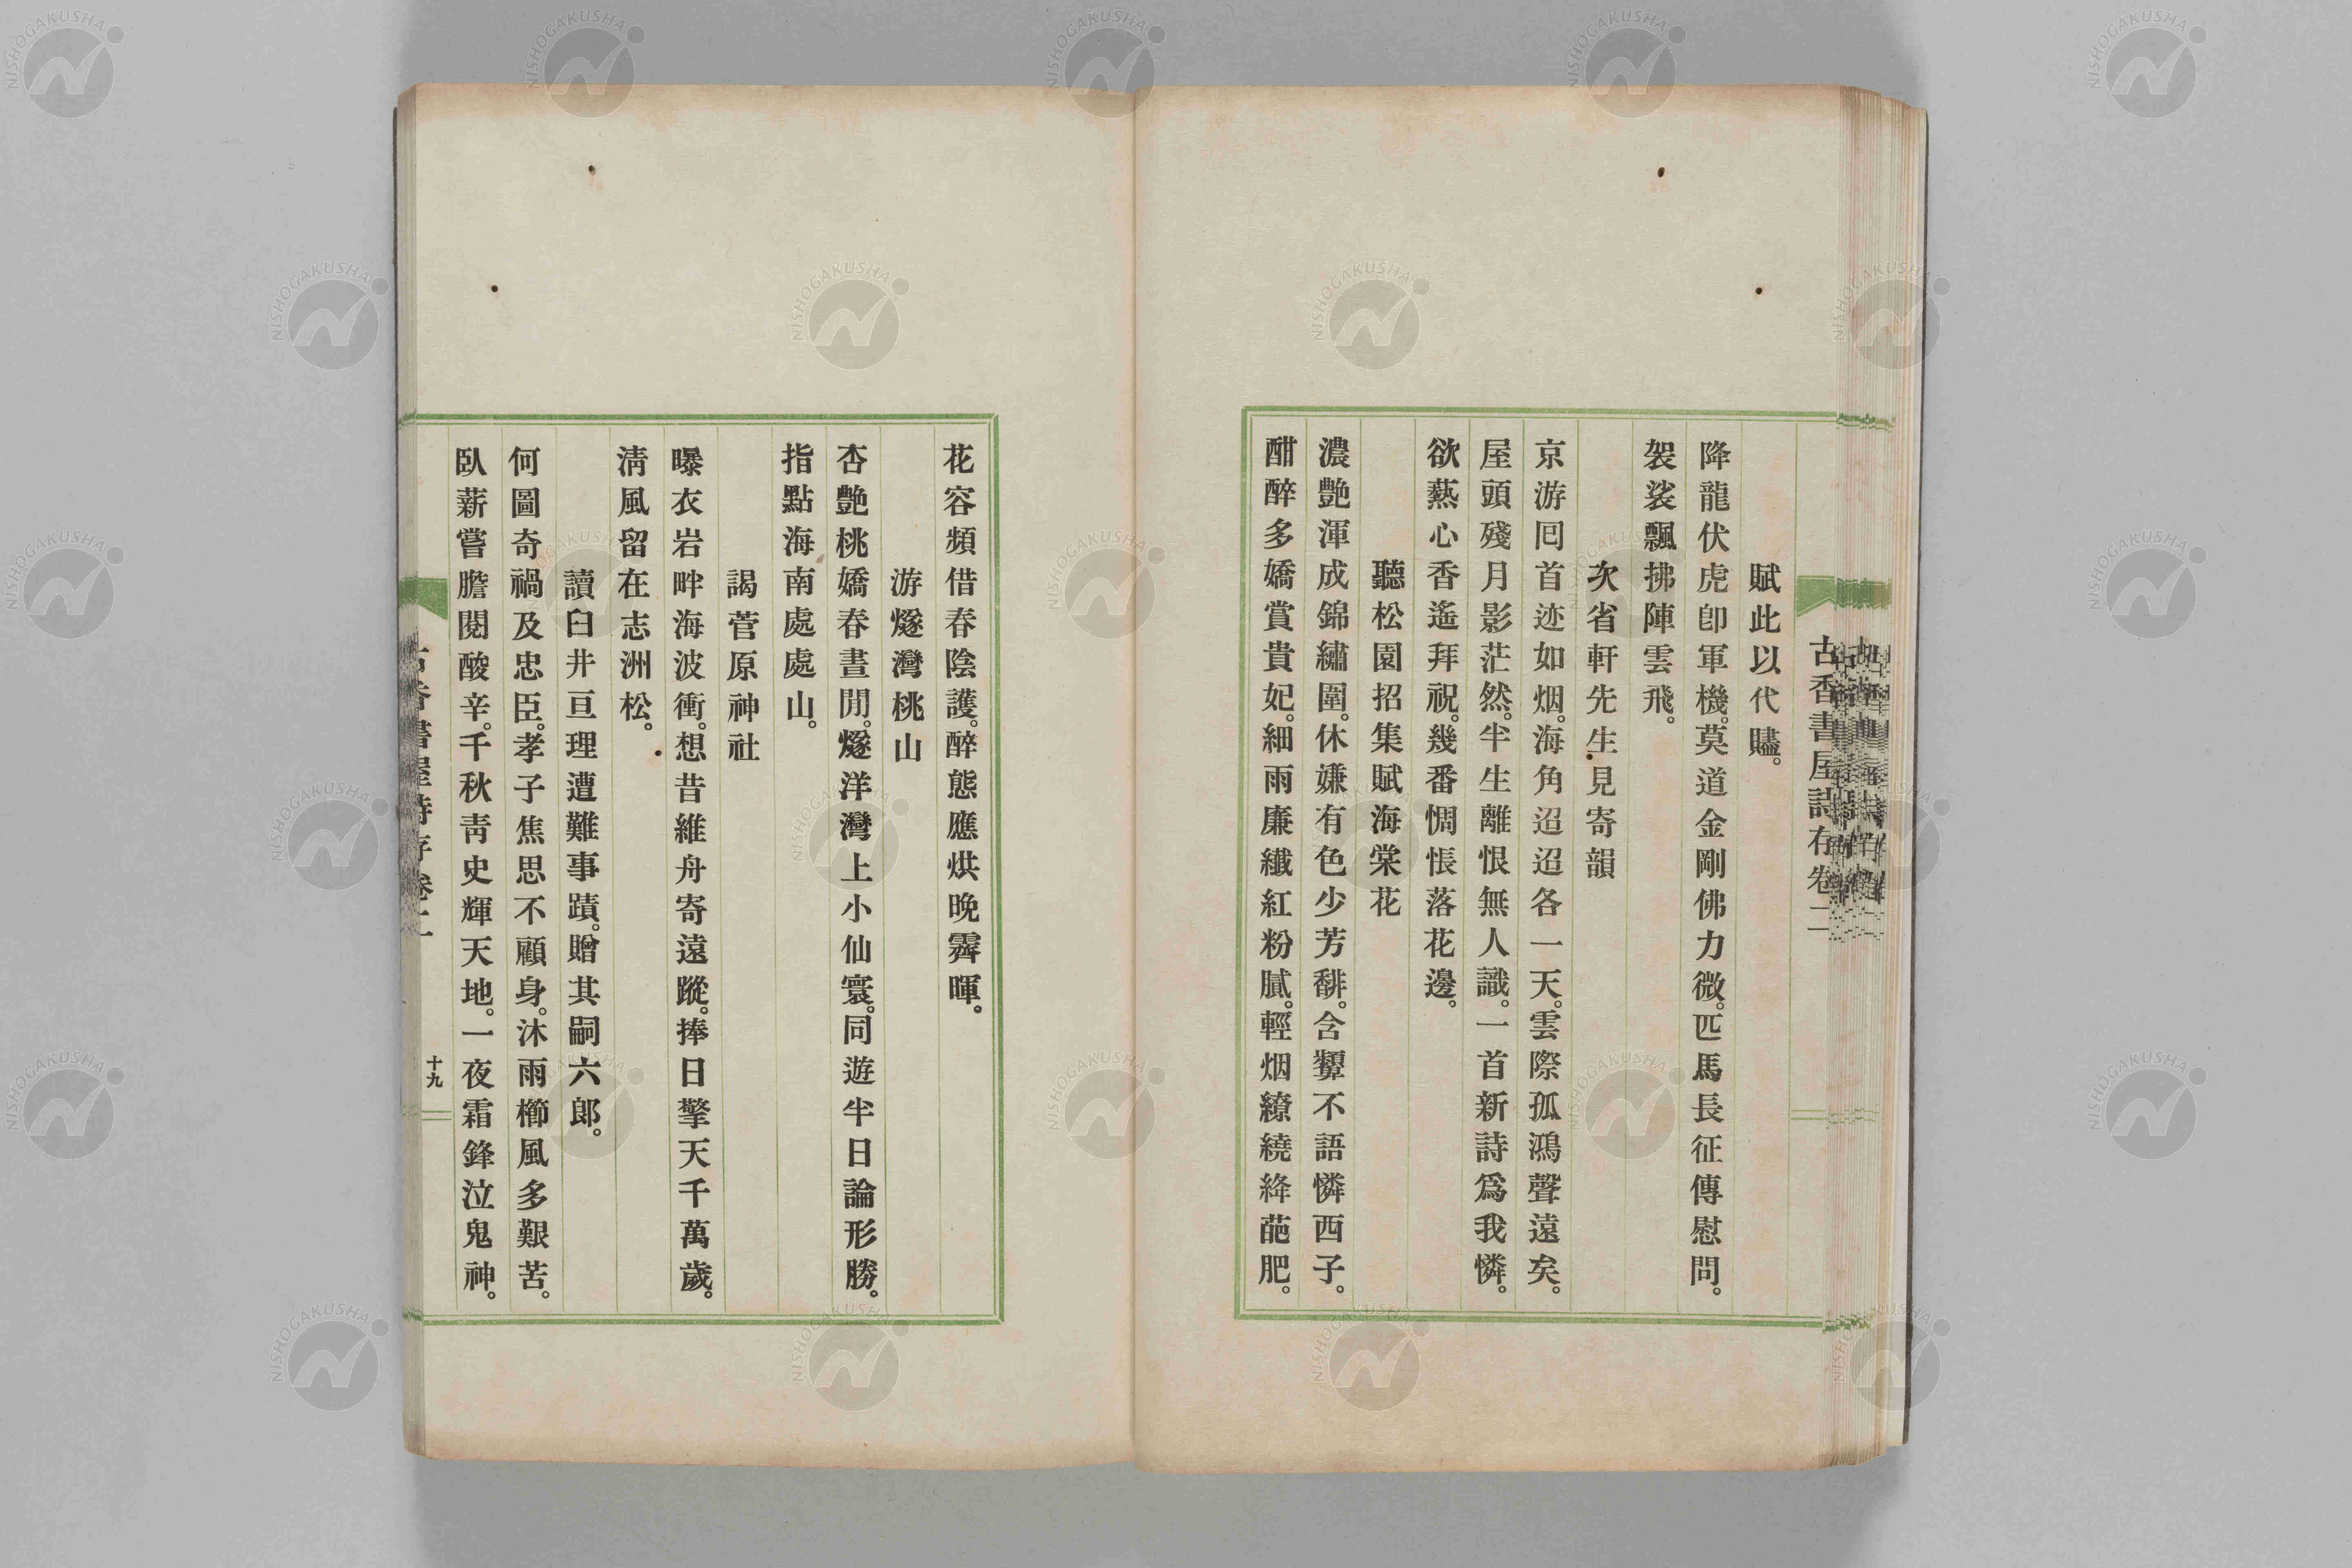 古香書屋詩存卷二
賦此以代贐。
降龍伏虎卽軍機。莫道金剛佛力微。匹馬長征傳慰問。
袈裟飄拂陣雲飛。
次省軒先生見寄韻
京游囘首迹如烟。海角迢迢各一天。雲際孤鴻聲遠矣。
屋頭殘月影茫然。半生離恨無人識。一首新詩爲我憐。
欲爇心香遙拜祝。幾番惆悵落花邊。
聽松園招集賦海棠花
濃艷渾成錦繡圍。休嫌有色少芳馡。含顰不語憐西子。
酣醉多嬌賞貴妃。細雨廉纖紅粉膩。輕烟繚繞絳葩肥。
花容頻借春陰護。醉態應烘晚霽暉。
游燧灣桃山
杏艷桃嬌春晝閒。燧洋灣上小仙寰。同遊半日論形勝。
指點海南處處山。
謁菅原神社
曝衣岩畔海波衝。想昔維舟寄遠蹤。捧日擎天千萬歲。
淸風留在志洲松。
讀臼井亘理遭難事蹟。贈其嗣六郎。
何圖奇禍及忠臣。孝子焦思不顧身。沐雨櫛風多艱苦。
臥薪嘗膽閱酸辛。千秋靑史輝天地。一夜霜鋒泣鬼神。
古香書屋詩存卷二
十九
NISHOGAKUSHA